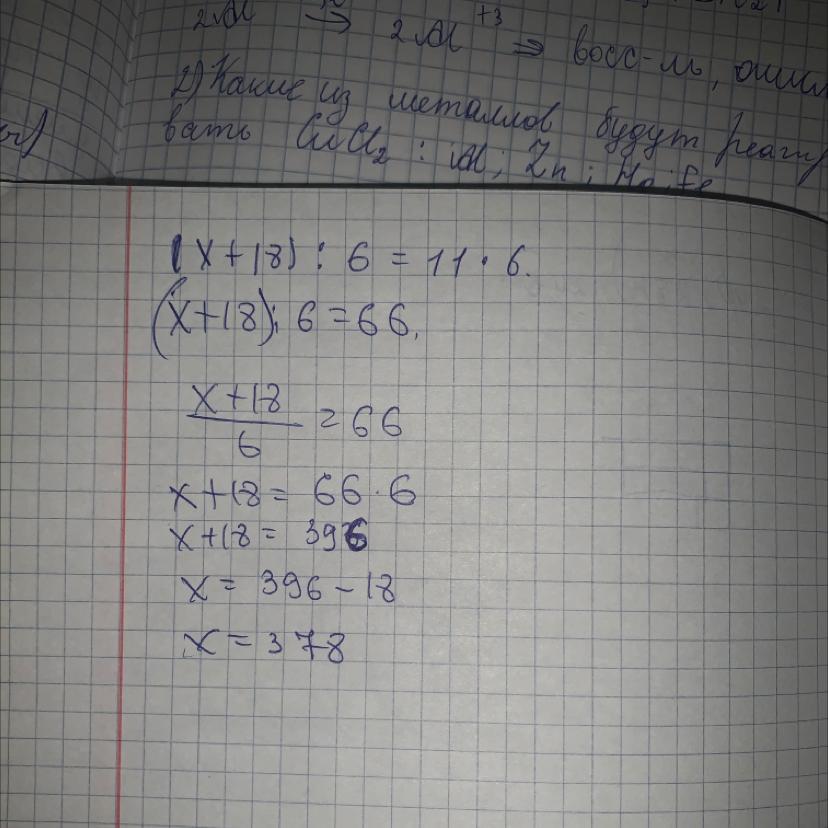 2Al → 2Al +3 ⇒ восс-ль,
2) Какие из металлов будут реагиро
вать CuCl₂ : Al; Zn; Fe
(x+18) : 6 = 11 · 6.
(x+18) : 6 = 66.
x+18 / 6 = 66
x+18 = 66 · 6
x+18 = 396
x = 396 - 18
x = 378